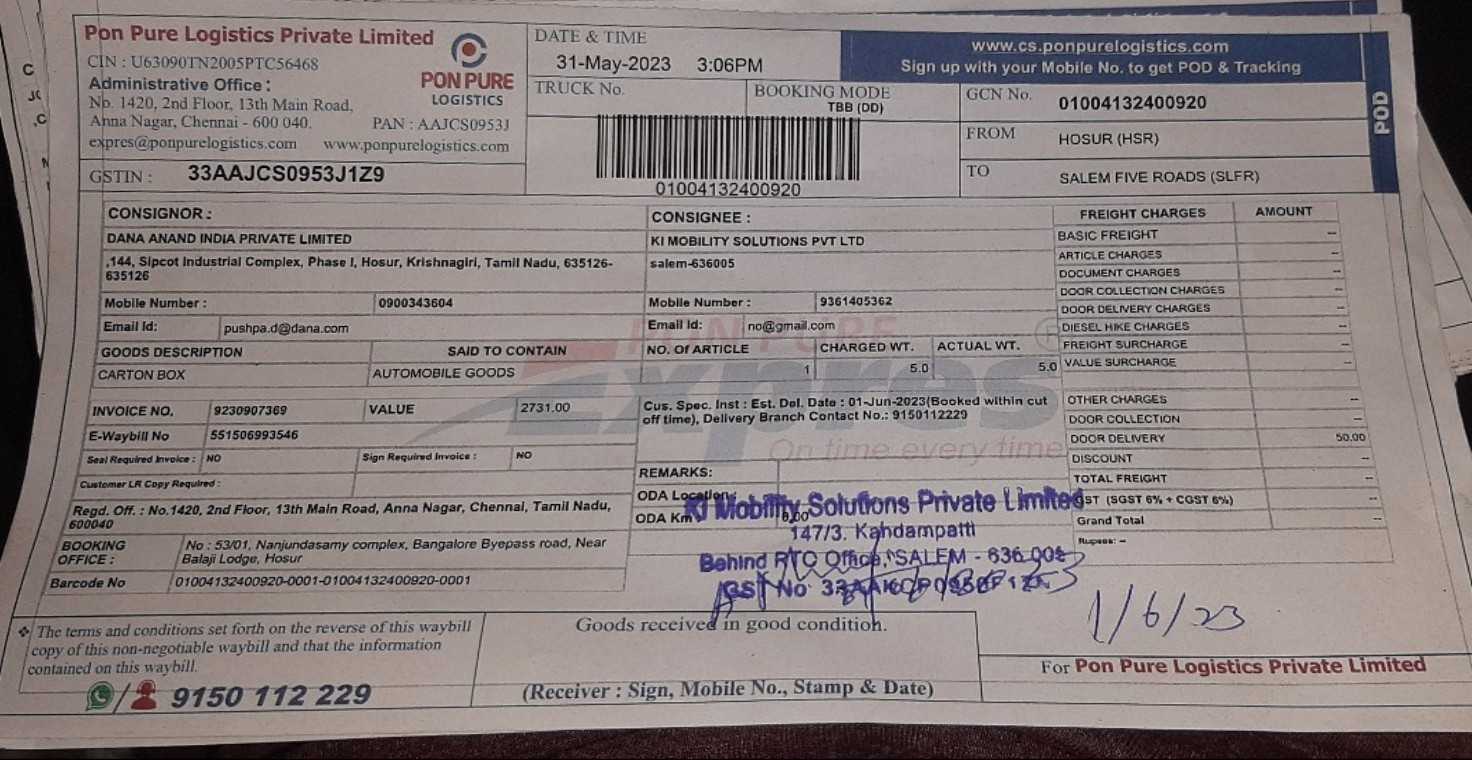 Pon Pure Logistics Private Limited
CIN : U63090TN2005PTC56468
Administrative Office :
No. 1420, 2nd Floor, 13th Main Road,
Anna Nagar, Chennai - 600 040. PAN : AAJCS0953J
expres@ponpurelogistics.com www.ponpurelogistics.com
PON PURE
LOGISTICS
GSTIN : 33AAJCS0953J1Z9
DATE & TIME
31-May-2023 3:06PM
TRUCK No.
BOOKING MODE
TBB (DD)
01004132400920
www.cs.ponpurelogistics.com
Sign up with your Mobile No. to get POD & Tracking
GCN No. 01004132400920
FROM HOSUR (HSR)
TO SALEM FIVE ROADS (SLFR)
POD
CONSIGNOR :
DANA ANAND INDIA PRIVATE LIMITED
,144, Sipcot Industrial Complex, Phase I, Hosur, Krishnagiri, Tamil Nadu, 635126-
635126
Mobile Number : 0900343604
Email Id: pushpa.d@dana.com
CONSIGNEE :
KI MOBILITY SOLUTIONS PVT LTD
salem-636005
Mobile Number : 9361405362
Email Id: no@gmail.com
GOODS DESCRIPTION SAID TO CONTAIN NO. Of ARTICLE CHARGED WT. ACTUAL WT.
CARTON BOX AUTOMOBILE GOODS 1 5.0 5.0
INVOICE NO. 9230907369 VALUE 2731.00
E-Waybill No 551506993546
Seal Required Invoice : NO Sign Required Invoice : NO
Customer LR Copy Required :
Regd. Off. : No.1420, 2nd Floor, 13th Main Road, Anna Nagar, Chennai, Tamil Nadu,
600040
BOOKING OFFICE : No : 53/01, Nanjundasamy complex, Bangalore Byepass road, Near
Balaji Lodge, Hosur
Barcode No 01004132400920-0001-01004132400920-0001
Cus. Spec. Inst : Est. Del. Date : 01-Jun-2023(Booked within cut
off time), Delivery Branch Contact No.: 9150112229
REMARKS:
ODA Location:
ODA Km 0.00
PON PURE
Expres
On time every time
KI Mobility Solutions Private Limited
147/3. Kahdampatti
Behind RTO Office, SALEM - 636 005
GST No
FREIGHT CHARGES AMOUNT
BASIC FREIGHT --
ARTICLE CHARGES --
DOCUMENT CHARGES --
DOOR COLLECTION CHARGES --
DOOR DELIVERY CHARGES --
DIESEL HIKE CHARGES --
FREIGHT SURCHARGE --
VALUE SURCHARGE --
OTHER CHARGES --
DOOR COLLECTION --
DOOR DELIVERY 50.00
DISCOUNT --
TOTAL FREIGHT --
GST (SGST 6% + CGST 6%) --
Grand Total --
Rupees: --
1/6/23
❖ The terms and conditions set forth on the reverse of this waybill
copy of this non-negotiable waybill and that the information
contained on this waybill.
9150 112 229
Goods received in good condition.
(Receiver : Sign, Mobile No., Stamp & Date)
For Pon Pure Logistics Private Limited